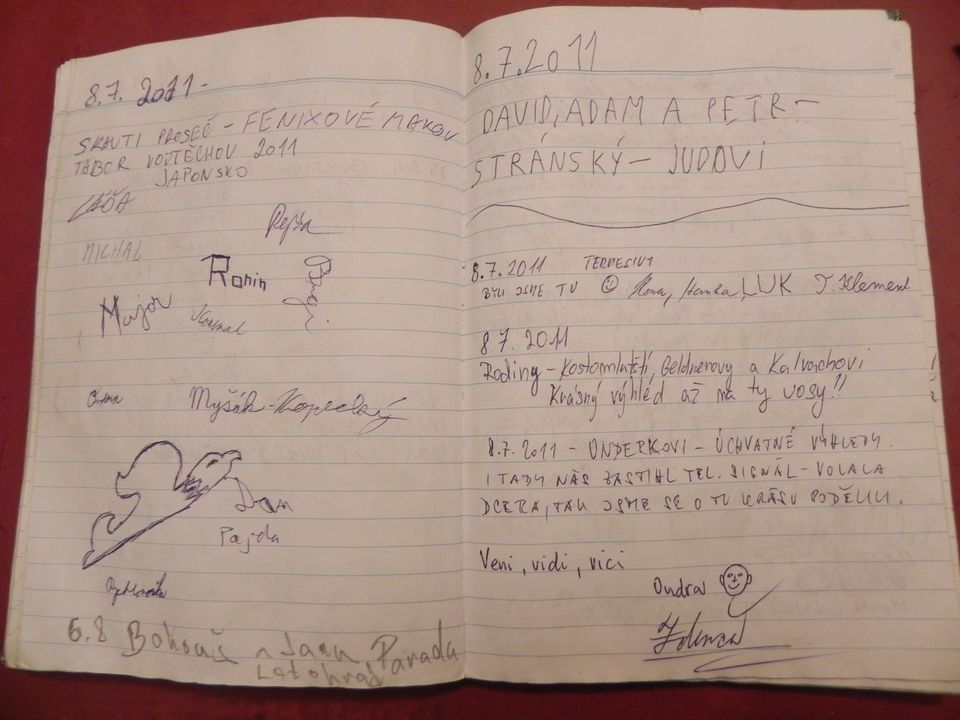 8.7. 2011 -
SKAUTI PROSEČ - FENIXOVÉ MAKOV
TÁBOR VOJTĚCHOV 2011
JAPONSKO
LÁĎA
Pepča
MICHAL
Ronin
Major
Myšák - Kopecký
Dan
Pajda
6.8 Bohouš a Jana Parada
Letohrad
8.7.2011
DAVID, ADAM A PETR -
STRÁNSKÝ - JUDOVI
8.7.2011 TERMESIVY
BYLI JSME TU Ilona, Hanka, LUK T. Klement
8.7. 2011
Rodiny - Kostomlatští, Geldnerovy a Kalvachovi
Krásný výhled až na ty vosy!!
8.7.2011 - ONDERKOVI - ÚCHVATNÉ VÝHLEDY.
I TADY NÁS ZASTIHL TEL. SIGNÁL - VOLALA
DCERA, TAK JSME SE O TU KRÁSU PODĚLILI.
Veni, vidi, vici
Ondra